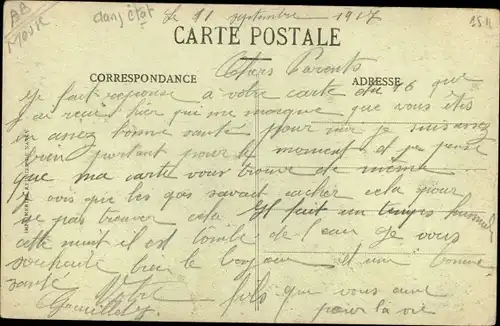 AB
dans état
Le 11 septembre 1917
3511
CARTE POSTALE
CORRESPONDANCE
ADRESSE
Chers Parents
Je fait reponse à votre carte du 6 que
j'ai reçu hier qui me marque que vous êtes
en assez bonne santé pour moi je suis assez
bien portant pour le moment et je pense
que ma carte vous trouve de même
Je vois que les gas savait cacher cela pour
ne pas trouver cela Il fait un temps
cette nuit il est tombé de l'eau Je vous
souhaite bien le bonjour et une bonne
santé Votre fils que vous aime
pour la vie